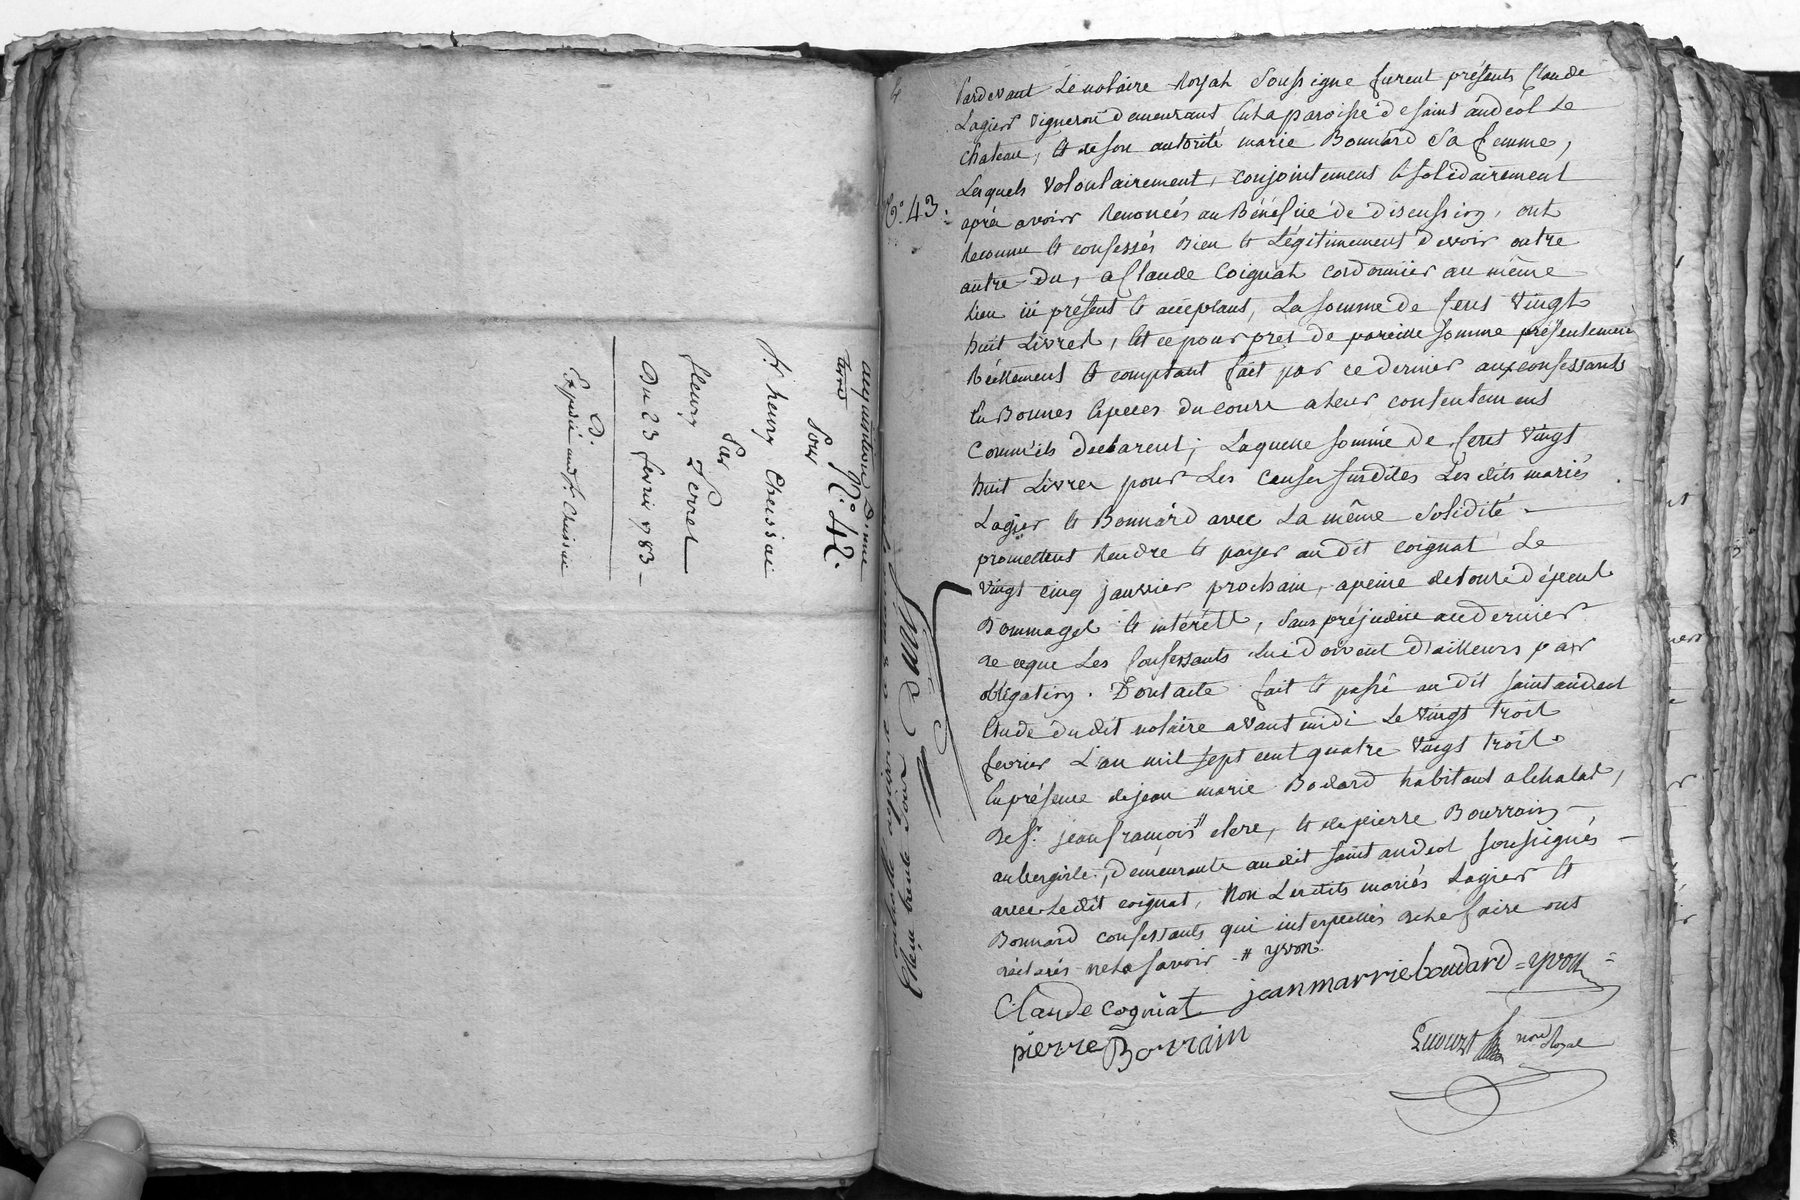 acquisition d'une
terre
N.º 42.
Pour
Sr. henry Cheissai
Par
fleury Perret
Du 23 fevrier 1783
Expedié aud. Sr. Cheissai
N.º 43.
Pardevant Le notaire Royal Soussigné furent présents Claude
Lagier Vigneron demeurant en la paroisse de saint andéol Le
chateau, et de son autorité marie Bonnard Sa femme,
Lesquels volontairement, conjointement et solidairement
après avoir Renoncés au Bénéfice de discussion, ont
Reconnu et confessés Bien et Légitimement devoir outre
autre du, a Claude Coignat cordonnier au même
Lieu ici présent et acceptant, La somme de Cent Vingt
huit Livres, et ce pour pret de pareille somme présentement
Réellement et comptant fait par ce dernier aux confessants
En Bonnes Especes du cours a leur contentement
Comm'ils declarent; Laquelle somme de Cent Vingt
huit Livres pour Les causes susdites Les dits mariés
Lagier et Bonnard avec La même Solidité
promettent Rendre et payer au dit Coignat Le
Vingt cinq janvier prochain, apeine de tous dépens
Dommages et intérêts, sans préjudice au dernier
de ceque Les Confessants Lui doivent d'ailleurs par
obligation. Dont acte fait et passé au dit saint andeol
Etude dudit notaire avant midi Le Vingt trois
fevrier L'an mil sept cent quatre Vingt trois
En présence de jean marie Bodard habitant a Chalat,
de Sr. jean françois # clerc, et de pierre Bourrain
aubergiste, demeurants audit saint andeol soussignés
avec Ledit coignat, Non Lesdits mariés Lagier et
Bonnard confessants qui interpellés de Le faire ont
déclarés ne Le savoir # yvon.
Claude cogniat jean marrie boudard = yvon =
pierre Borrain
nore Royal